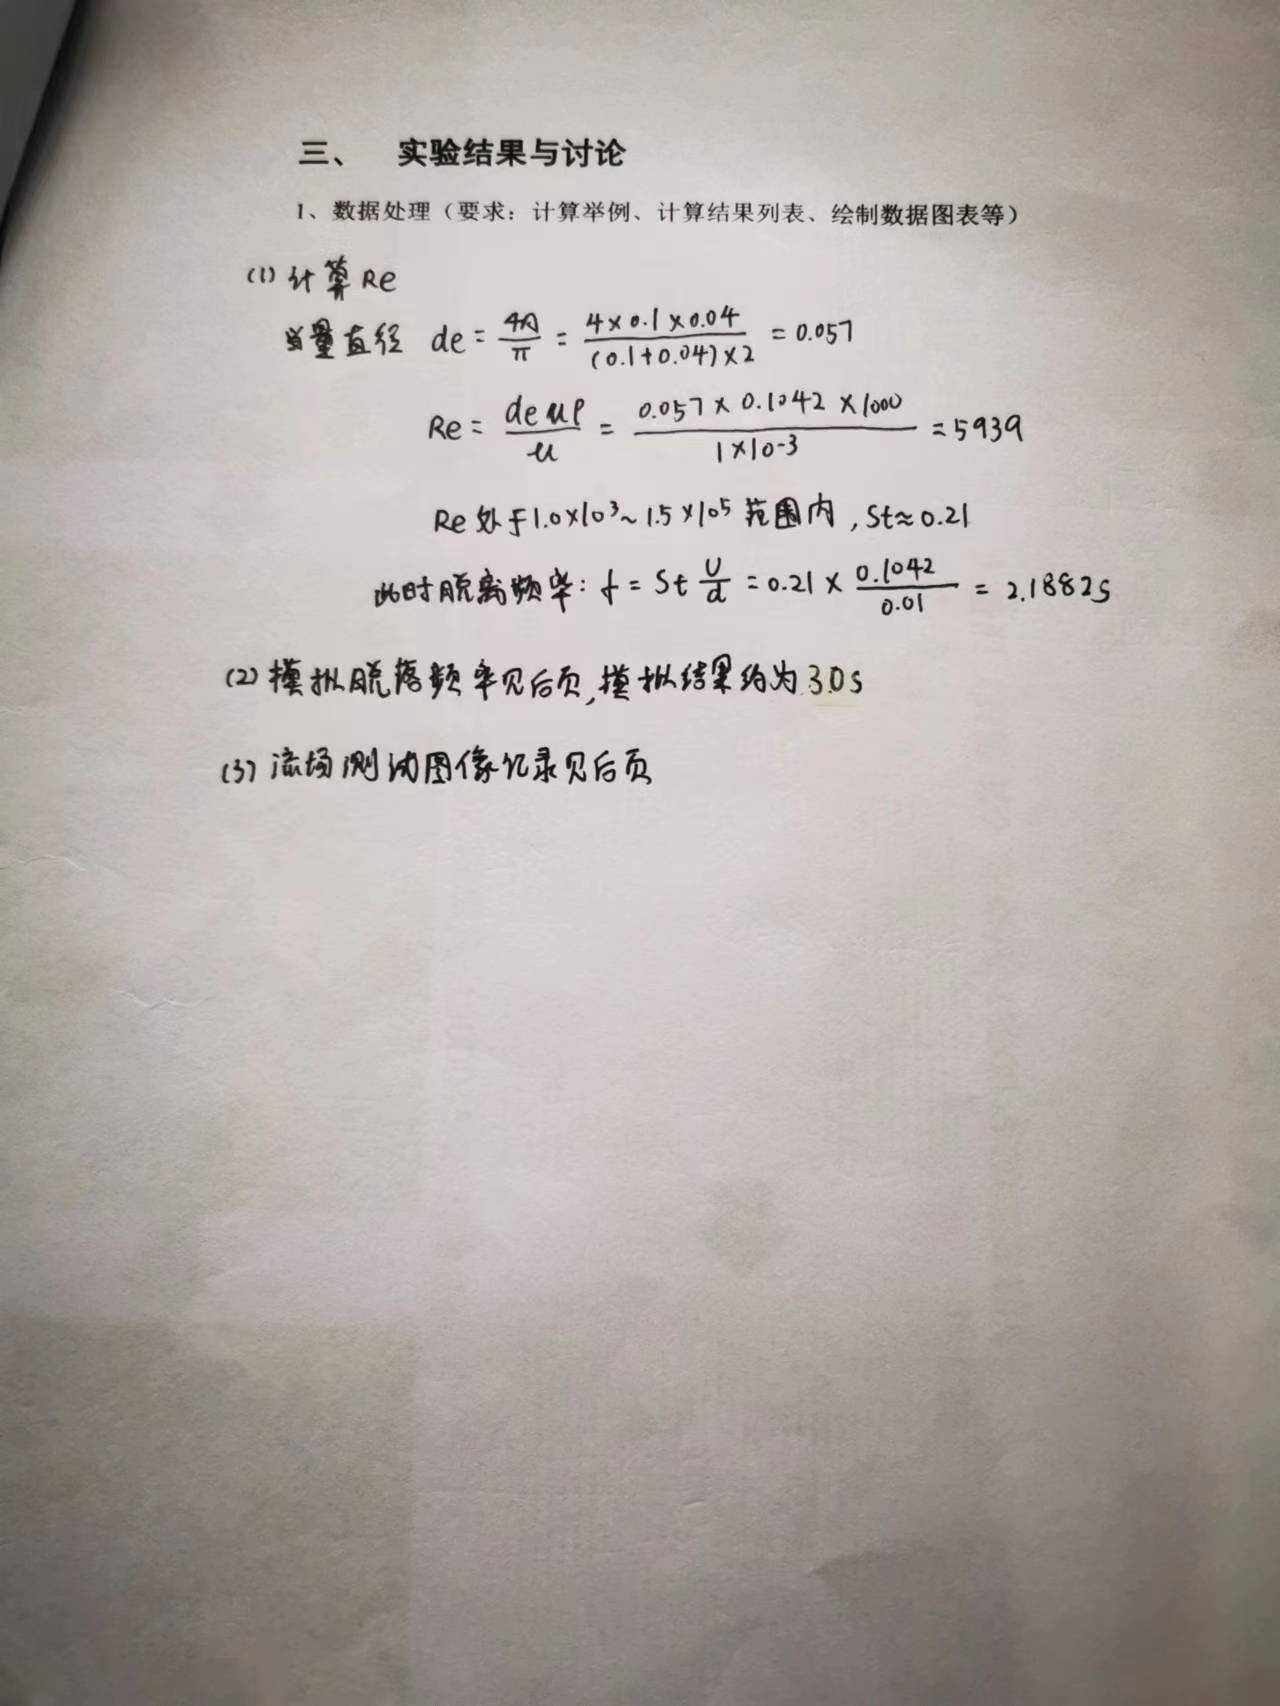 三、 实验结果与讨论
1、数据处理（要求：计算举例、计算结果列表、绘制数据图表等）
(1) 计算 Re
当量直径 de = 4A/π = 4×0.1×0.04/(0.1+0.04)×2 = 0.057
Re = deuρ/u = 0.057×0.1042×1000/1×10-3 = 5939
Re 处于1.0×10³~1.5×10⁵ 范围内, St≈0.21
此时脱离频率: f = St U/d = 0.21 × 0.1042/0.01 = 2.1882s
(2) 模拟脱落频率见后页, 模拟结果约为 3.0s
(3) 流场测试图像记录见后页